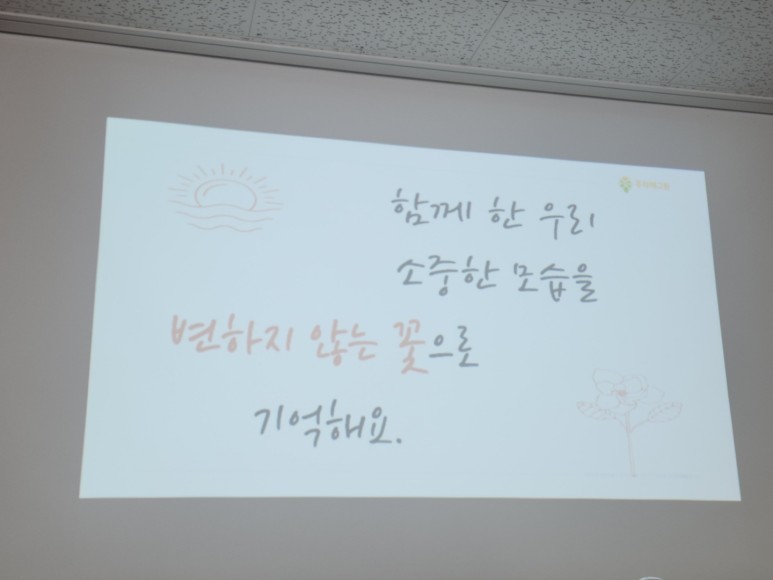 함께 한 우리
소중한 모습을
변하지 않는 꽃으로
기억해요.